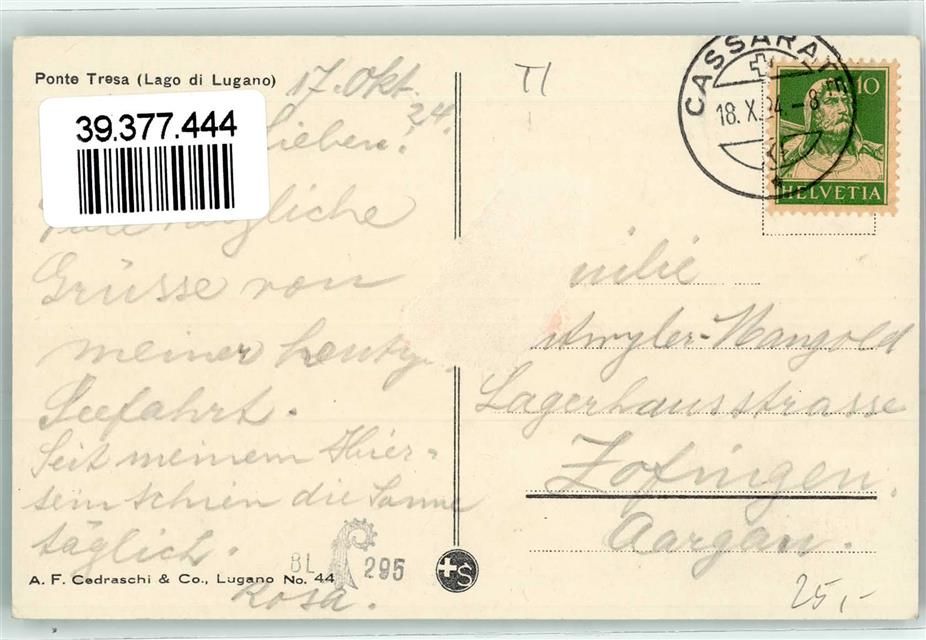 Ponte Tresa (Lago di Lugano)
17. Okt. 24.
39.377.444
Lieben!
herzliche
Grüsse von
meiner heutg.
Seefahrt.
Seit meinem Hier-
sein schien die Sonne
täglich.
Rosa.
BL 295
A. F. Cedraschi & Co., Lugano No. 44
S
TI
CASSARATE
18. X. 24. - 8
10
HELVETIA
milie
Amsler-Mangold
Lagerhausstrasse
Zofingen.
Aargau.
25,-